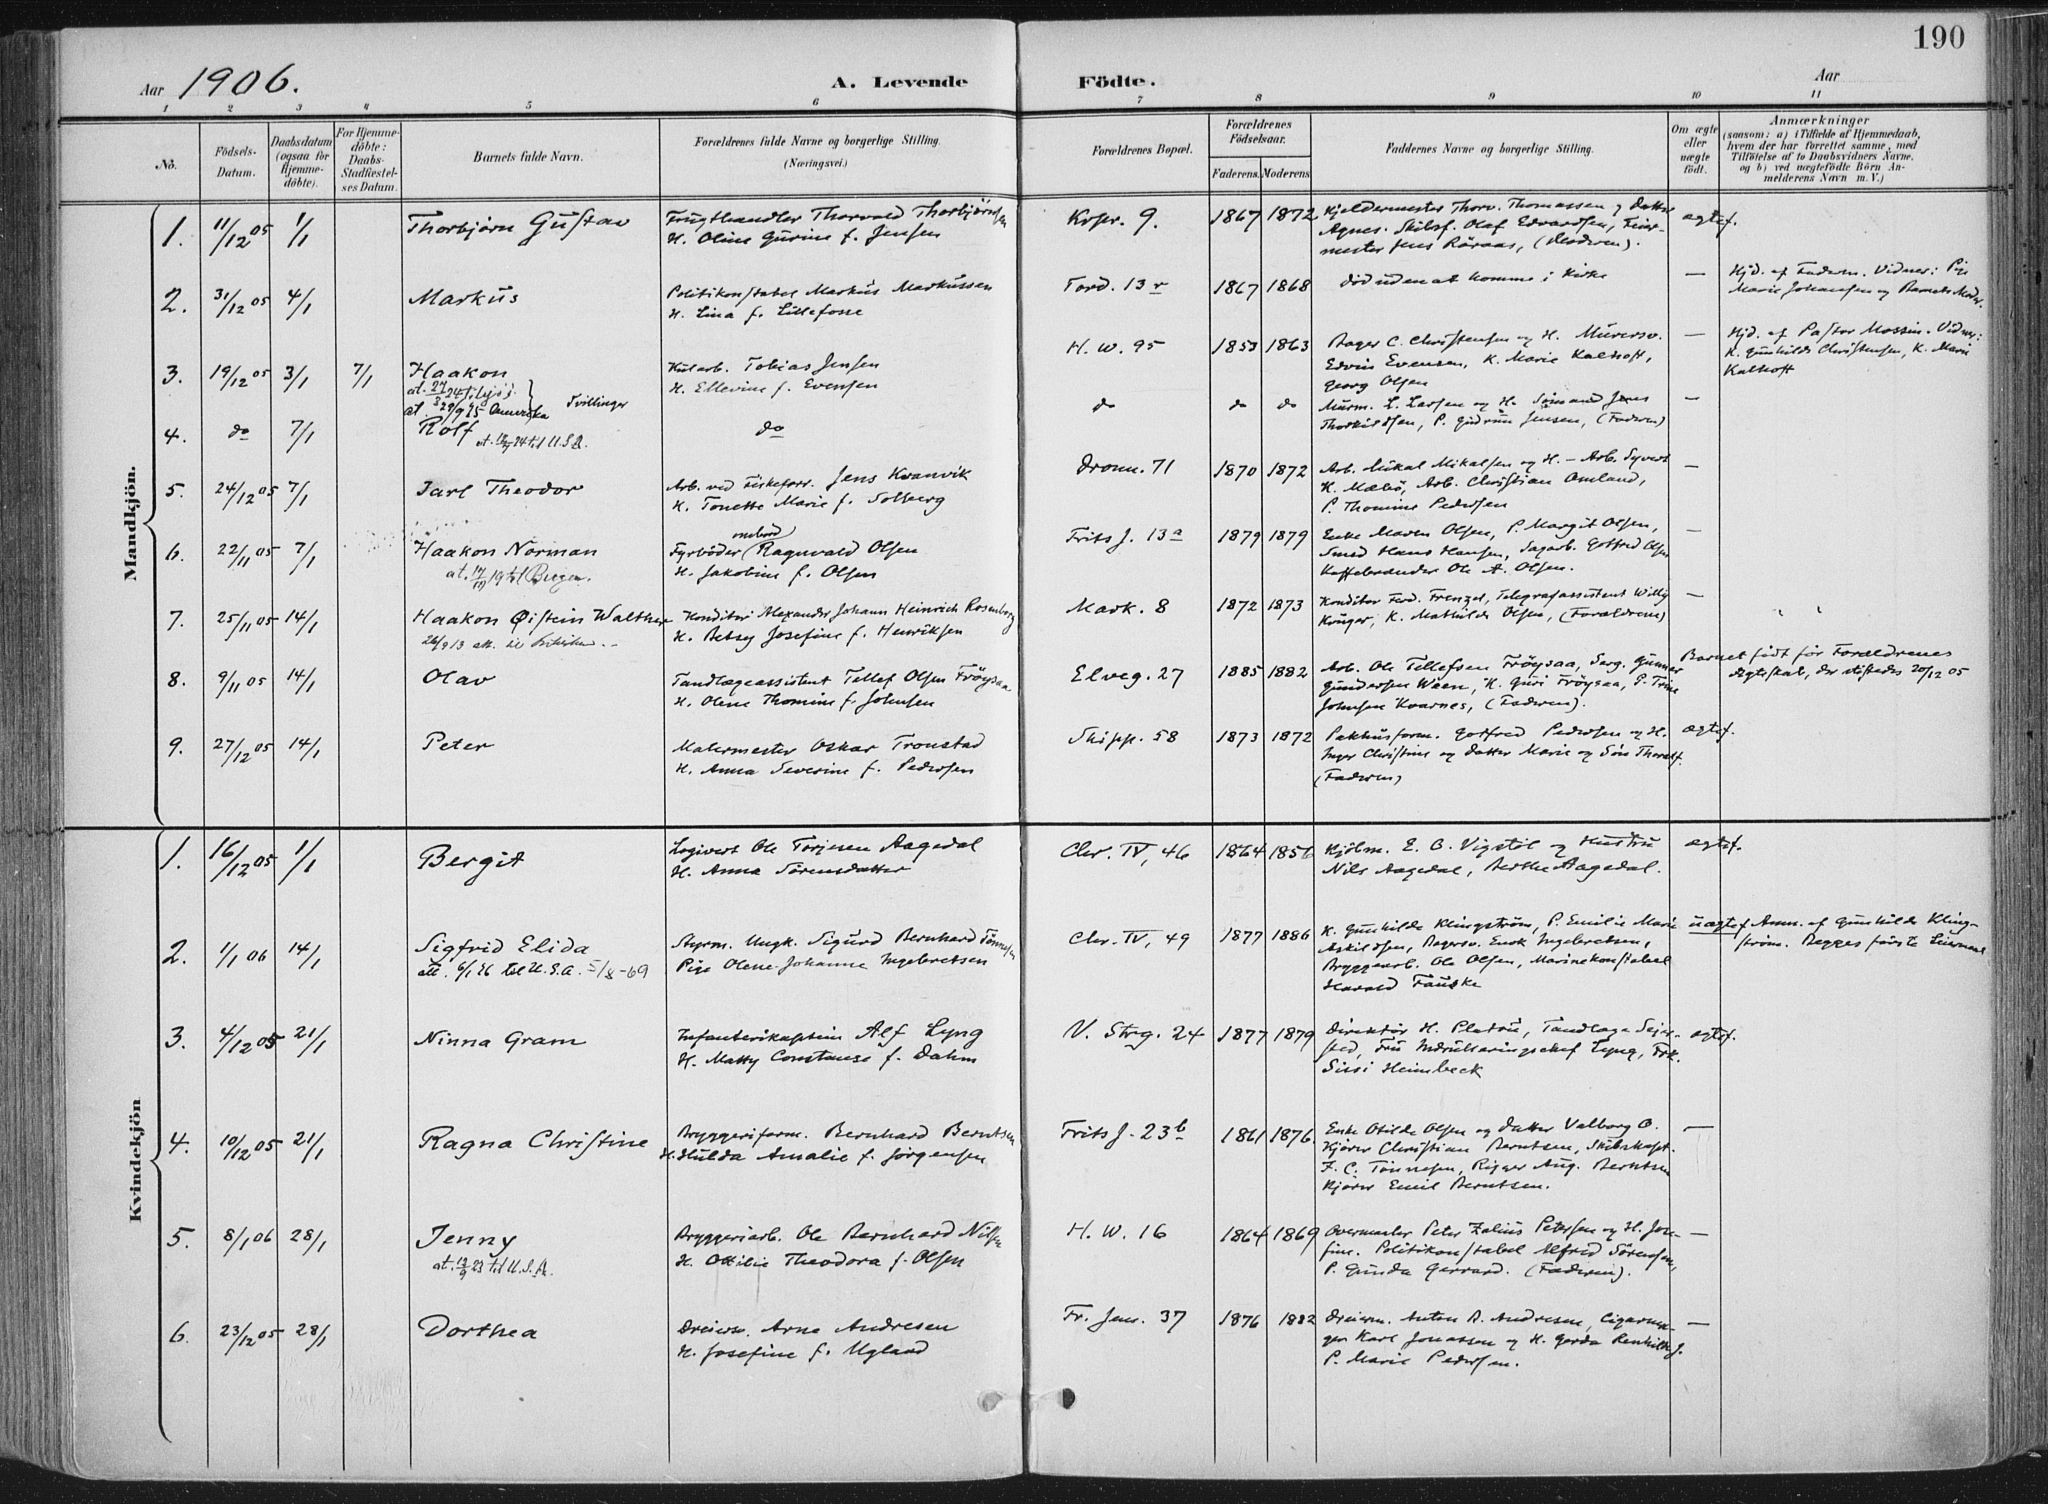 190
Aar 1906. A. Levende Födte. Aar
1 2 3 4 5 6 7 8 9 10 11
No. Födsels-Datum. Daabsdatum (ogsaa for Hjemme-döbte). For Hjemme-döbte: Daabs-Stadfæstel-ses Datum. Barnets fulde Navn. Forældrenes fulde Navne og borgerlige Stilling. (Næringsvei.) Forældrenes Bopæl. Forældrenes Födselsaar. Faderens. Moderens Faddernes Navne og borgerlige Stilling. Om ægte eller uægte födt. Anmærkninger (saasom: a) i Tilfælde af Hjemmedaab, hvem der har forrettet samme, med Tilföielse af to Daabsvidners Navne, og b) ved uægtefödte Börn An-melderens Navn m. V.)
Mandkjön.
1. 11/12 05 1/1 Thorbjörn Gustav Frugthandler Thorvald Thorbjörnsen Kspr. 9. 1867 1872 Kjeldermester Thorv. Thomassen og Datter ægtef.
H. Oline Gurine f. Jensen Agnes. Skibsf. Olaf Edvardsen, Feier-
mester Jens Röraas, (Moderen).
2. 31/12 05 4/1 Markus Politikonstabel Markus Markussen Tord. 13 r 1867 1868 död uden at komme i Kirke — Hjd. af Faderen. Vidner: Pige
H. Lina f. Lillefosse Marie Johansen og Barnets Moder.
3. 19/12 05 3/1 7/1 Haakon Tvillinger Kularb. Tobias Jensen H. W. 95 1853 1863 Bager C. Christensen og H. Murersv. — Hjd. af Pastor Mossin. Vidner:
H. Ellevine f. Evensen Edvin Evensen, K. Marie Kalhoff, K. Gunhilde Christensen, K. Marie
Georg Olsen Kalhoff
4. do 7/1 Rolf do do do do Murm. L. Larsen og H. Sömand Jens —
at. 24 til U.S.A. Thorkildsen, P. Gudrun Jensen, (Faderen)
5. 24/12 05 7/1 Jarl Theodor Arb. ved Fiskeforr. Jens Kvanvik Dronn. 71 1870 1872 Arb. Mikal Mikalsen og H. – Arb. Syvert —
H. Tonette Marie f. Solberg K. Mæbö, Arb. Christian Omland,
P. Thomine Pedersen
6. 22/11 05 7/1 Haakon Norman Fyrböder ombord Ragnvald Olsen Frits J. 13 a 1879 1879 Enke Maren Olsen, P. Margit Olsen, —
at. 17/11 19 til Bergen. H. Jakobine f. Olsen Smed Hans Hansen, Sagarb. Gotfred Olsen
Kaffebrænder Ole A. Olsen.
7. 25/11 05 14/1 Haakon Øistein Walther Konditor Alexander Johann Heinrich Rosenberg Mark. 8 1872 1873 Konditor Ferd. Frenzel, Telegrafassistent Willy —
H. Betsy Josefine f. Henriksen Krüger, K. Mathilde Olsen, (Forældrene)
8. 9/11 05 14/1 Olav Tandlægeassistent Tellef Olsen Fröysaa Elveg. 27 1885 1882 Arb. Ole Tellefsen Fröysaa, Serg. Gunner Barnet födt för Forældrenes
H. Olene Thomine f. Johnsen Gundersen Waen, K. Guri Fröysaa, P. Trine Ægteskab, der stiftedes 20/12 05
Johnsen Kvarnes, (Faderen).
9. 27/12 05 14/1 Peter Malermester Oskar Tronstad Skipp. 58 1873 1872 Pakhusform. Gotfred Pedersen og H. ægtef.
H. Anna Severine f. Pedersen Inger Christine og Datter Marie og Sön Thoralf.
(Faderen)
Kvindekjön
1. 16/12 05 1/1 Bergit Logivert Ole Torjesen Aagedal Chr. IV, 46 1864 1856 Kjölm. E. O. Vigstöl og Hustru ægtef.
H. Anna Sörensdatter Nils Aagedal, Berthe Aagedal.
2. 1/1 06 14/1 Sigfrid Elida Styrm. Ungk. Sigurd Bernhard Tönnesen Chr. IV, 49 1877 1886 K. Gunhilde Klingström, P. Emilie Marie uægtef Anm. af Gunhilde Kling-
att. 6/1 26 til U.S.A. 5/8-69 Pige Olene Johanne Ingebretsen Askildsen, Bagersv. Enok Ingebretsen, ström. Begges förste Leiermaal
Bryggearb. Ole Olsen, Marinekonstabel
Harald Fauske
3. 4/12 05 21/1 Ninna Gram Infanterikaptein Alf Lyng V. Strg. 24 1877 1879 Direktör H. Platou, Tandlæge Seier- ægtef.
H. Matty Constance f. Dahm sted, Fru Indrulleringschef Lyng, Frk.
Sissi Heimbeck
4. 10/12 05 21/1 Ragna Christine Bryggeriform. Bernhard Berntsen Frits J. 23 b 1861 1876. Enke Otilde Olsen og Datter Valborg O. —
H. Hulda Amalie f. Jörgensen Kjörer Christian Berntsen, Skibskapt.
F. C. Tönnesen, Rigger Aug. Berntsen
Kjörer Emil Berntsen.
5. 8/1 06 28/1 Jenny Bryggeriarb. Ole Bernhard Nilsen H. W. 16 1864 1869 Overmaskr Peter Julius Petersen og H. Jose- —
at. 12/9 23 til U.S.A. H. Ottilie Theodora f. Olsen fine. Politikonstabel Alfred Sörensen,
P. Gunda Gerrard. (Faderen).
6. 23/12 05 28/1 Dorthea Dreiersv. Arne Andresen Fr. Jens. 37 1876 1882 Dreierm. Anton B. Andresen, Cigarma- —
H. Josefine f. Ugland ger Karl Jonassen og H. Gerda Renhilde J.
P. Marie Pedersen.